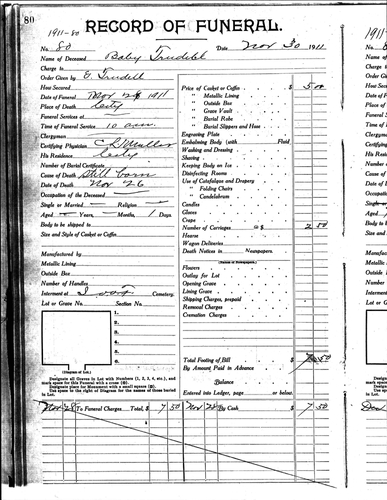 80
1911-80
RECORD OF FUNERAL.
No. 80 Date Nov 30 1911
Name of Deceased Baby Trudell
Charge to
Order Given by E Trudell
How Secured
Date of Funeral Nov 28 1911
Place of Death City
Funeral Services at
Time of Funeral Service 10 am
Clergyman
Certifying Physician Muller
His Residence City
Number of Burial Certificate
Cause of Death Still born
Date of Death Nov 26
Occupation of the Deceased
Single or Married — Religion —
Aged — Years, — Months, 1 Days.
Body to be shipped to
Size and Style of Casket or Coffin
Manufactured by
Metallic Lining
Outside Box
Number of Handles
Interment at Cemetery.
Lot or Grave No. Section No.
1.
2.
3.
4.
5.
6.
(Diagram of Lot.)
Designate all Graves in Lot with Numbers (1, 2, 3, 4, etc.), and
mark space for this Funeral with a cross (⊗).
Designate place for Monument with a small square (□).
Use space to the right of Diagram for the names of those buried
in Lot.
Price of Casket or Coffin $ 5.00
" Metallic Lining
" Outside Box
" Grave Vault
" Burial Robe
" Burial Slippers and Hose
Engraving Plate
Embalming Body (with Fluid)
Washing and Dressing
Shaving
Keeping Body on Ice
Disinfecting Rooms
Use of Catafalque and Drapery
" Folding Chairs
" Candelabrum
Candles
Gloves
Crape
Number of Carriages @ $ 2 50
Hearse
Wagon Deliveries
Death Notices in Newspapers.
(Names of Newspapers.)
Flowers
Outlay for Lot
Opening Grave
Lining Grave
Shipping Charges, prepaid
Removal Charges
Cremation Charges
Total Footing of Bill $ 7 50
By Amount Paid in Advance
Balance $
Entered into Ledger, page or below.
Nov 28 To Funeral Charges Total, $ 7 50 Nov 28 By Cash $ 7.50